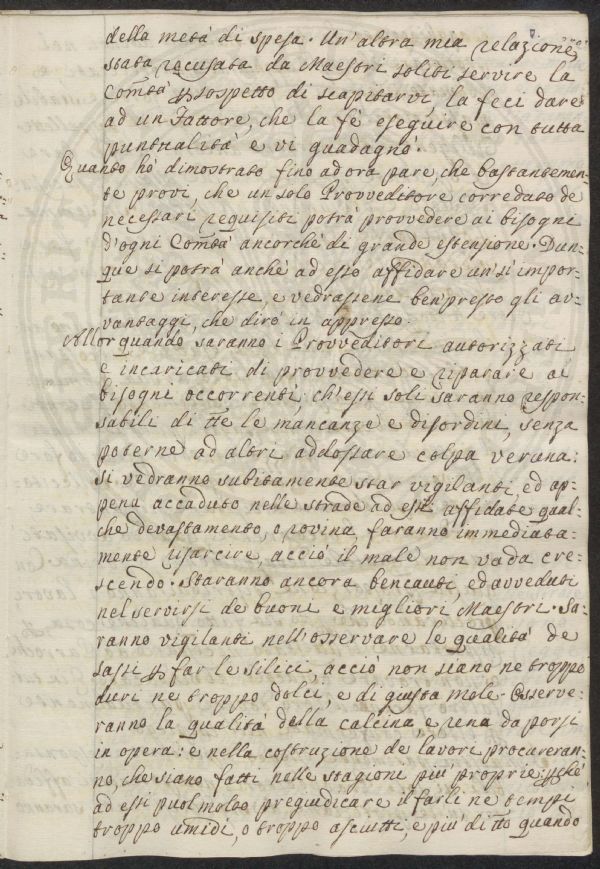 della metà di spesa. Un'altra mia relazione
stata recusata da Maestri soliti servire la
Comtà p sospetto di scapitarvi, la feci dare
ad un Fattore, che la fè eseguire con tutta
puntualità e vi guadagnò.
Quanto hò dimostrato fino ad ora pare, che bastantemen-
te provi, che un solo Provveditore corredato de
necessari requisiti potrà provvedere ai bisogni
d'ogni Comtà ancorchè di grande estensione. Dun-
que si potrà anche ad esso affidare un sì impor-
tante interesse, e vedrassene ben presto gli av-
vantaggi, che dirò in appresso.
Allorquando saranno i Provveditori autorizzati
e incaricati di provvedere e riparare ai
bisogni occorrenti; ch'essi soli saranno respon-
sabili di tte le mancanze e disordini, senza
poterne ad altri addossare colpa veruna:
si vedranno subitamente star vigilanti, ed ap-
pena accaduto nelle strade ad essi affidate qual-
che devastamento, o rovina, faranno immediata-
mente risarcire, acciò il male non vada cre-
scendo: Staranno ancora bencauti, ed avveduti
nel servirsi de buoni e migliori Maestri. Sa-
ranno vigilanti nell'osservare le qualità de
sassi p far le silici, acciò non siano ne troppo
duri ne troppo dolci, e di giusta mole. Osserve-
ranno la qualità della calcina, e rena da porsi
in opera: e nella costruzione de lavori procureran-
no, che siano fatti nelle stagioni più proprie: pchè
ad essi puol molto pregiudicare il farli ne tempi
troppo umidi, o troppo asciutti, e più di tto quando